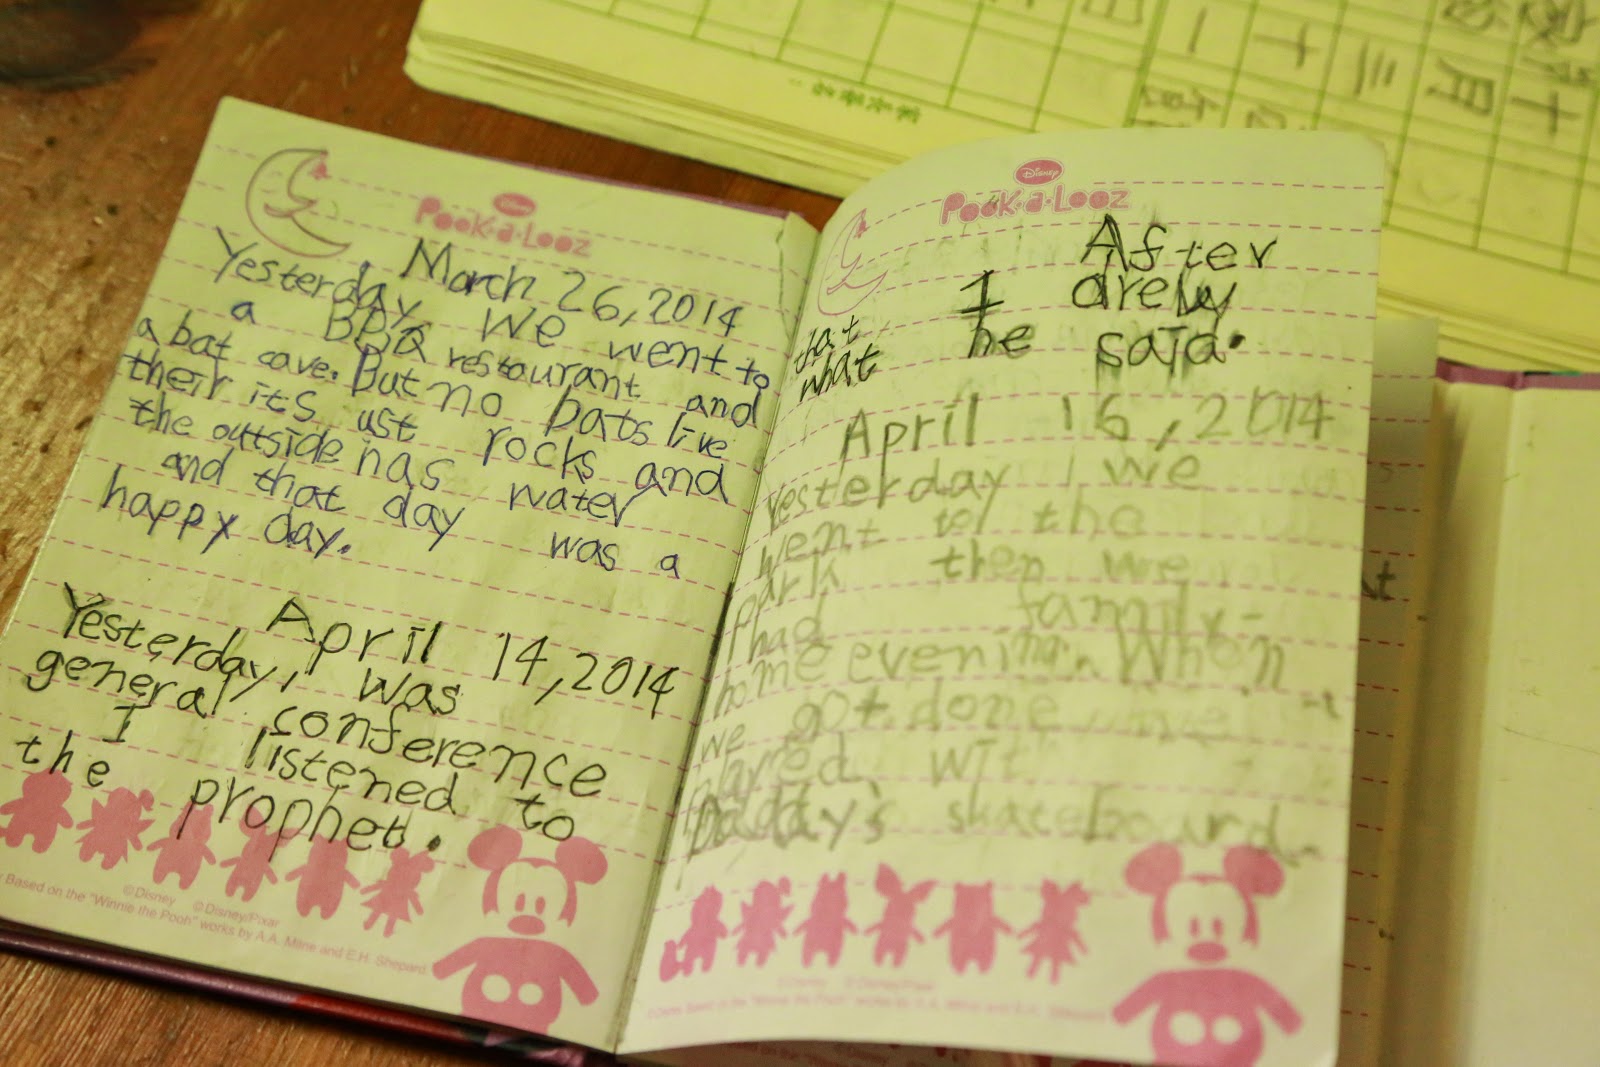 Disney
POOK·a·LOOZ
March 26, 2014
Yesterday, we went to
a BBQ restaurant and
a bat cave. But no bats live
their its ust rocks and
the outside has water
and that day was a
happy day.
April 14, 2014
Yesterday, was
general conference
I listened to
the prophet.
©Disney ©Disney/Pixar
Based on the "Winnie the Pooh" works by A.A. Milne and E.H. Shepard.
Disney
POOK·a·LOOZ
After
that I drew
what he said.
April 16, 2014
Yesterday, we
went to the
park then we
had family
home evening. When
we got done we
played wit
Daddy's skateboard.
©Disney ©Disney/Pixar
十
月
三
十
一